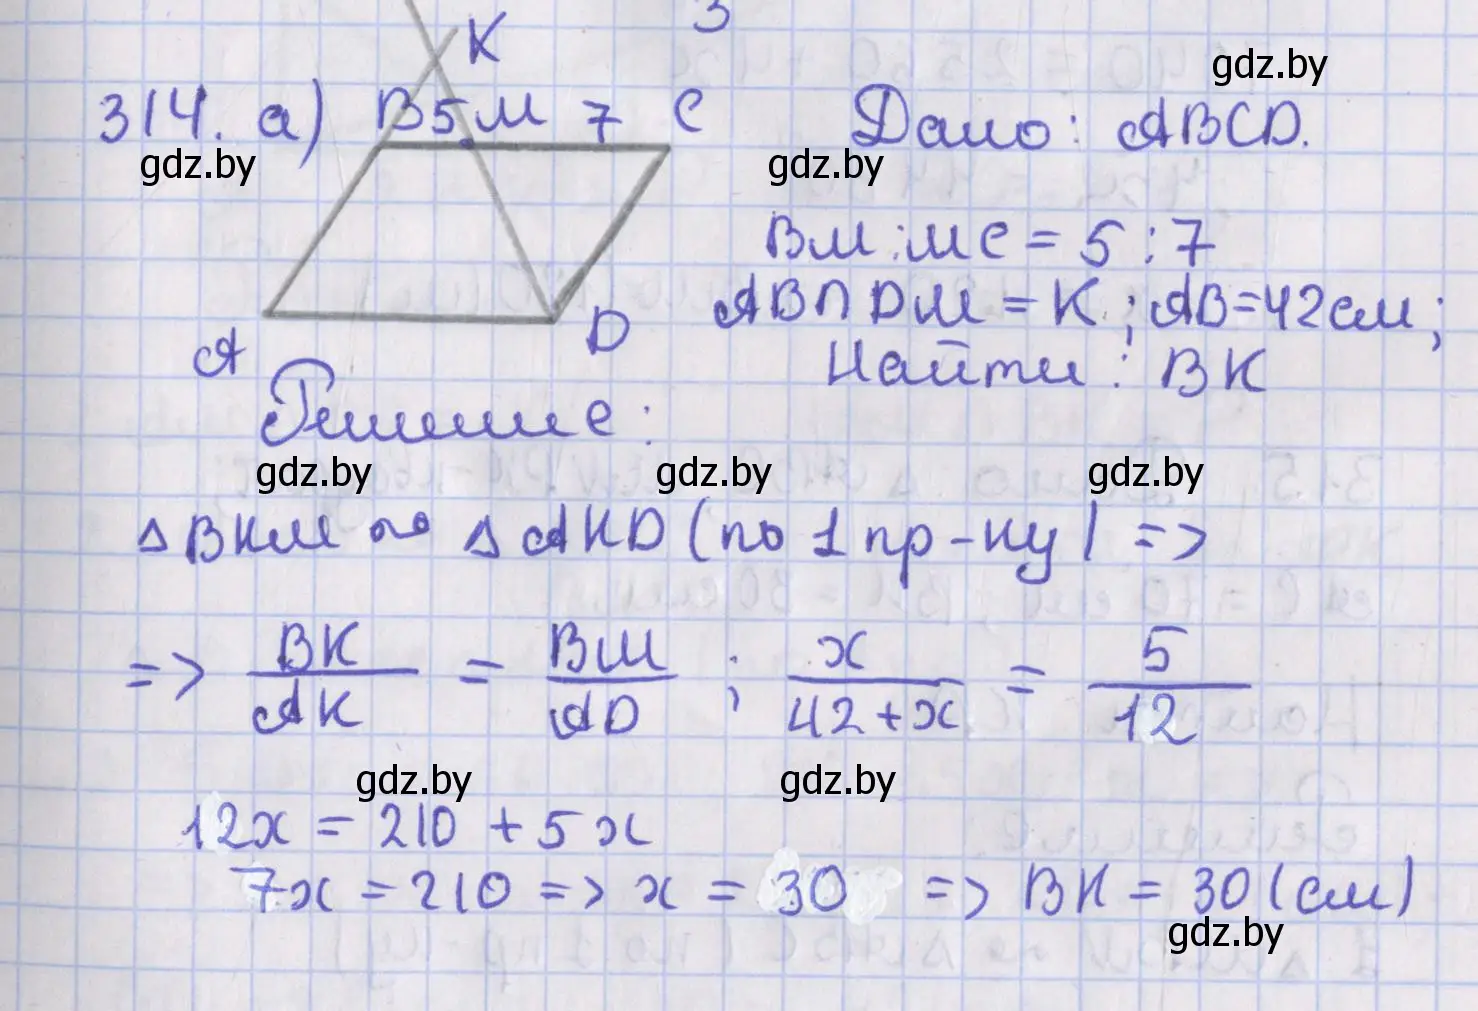 3
K
gdz.by
314. а) B 5 M 7 C Дано: ABCD.
gdz.by gdz.by
BM : MC = 5 : 7
AB ∩ DM = K ; AB = 42 см ;
A D Найти : BK
Решение :
gdz.by gdz.by gdz.by
Δ BKM ∾ Δ AKD (по 1 пр-ку) =>
=> BK/AK = BM/AD ; x/42+x = 5/12
gdz.by gdz.by
12x = 210 + 5x
7x = 210 => x = 30 => BK = 30 (см)
gdz.by